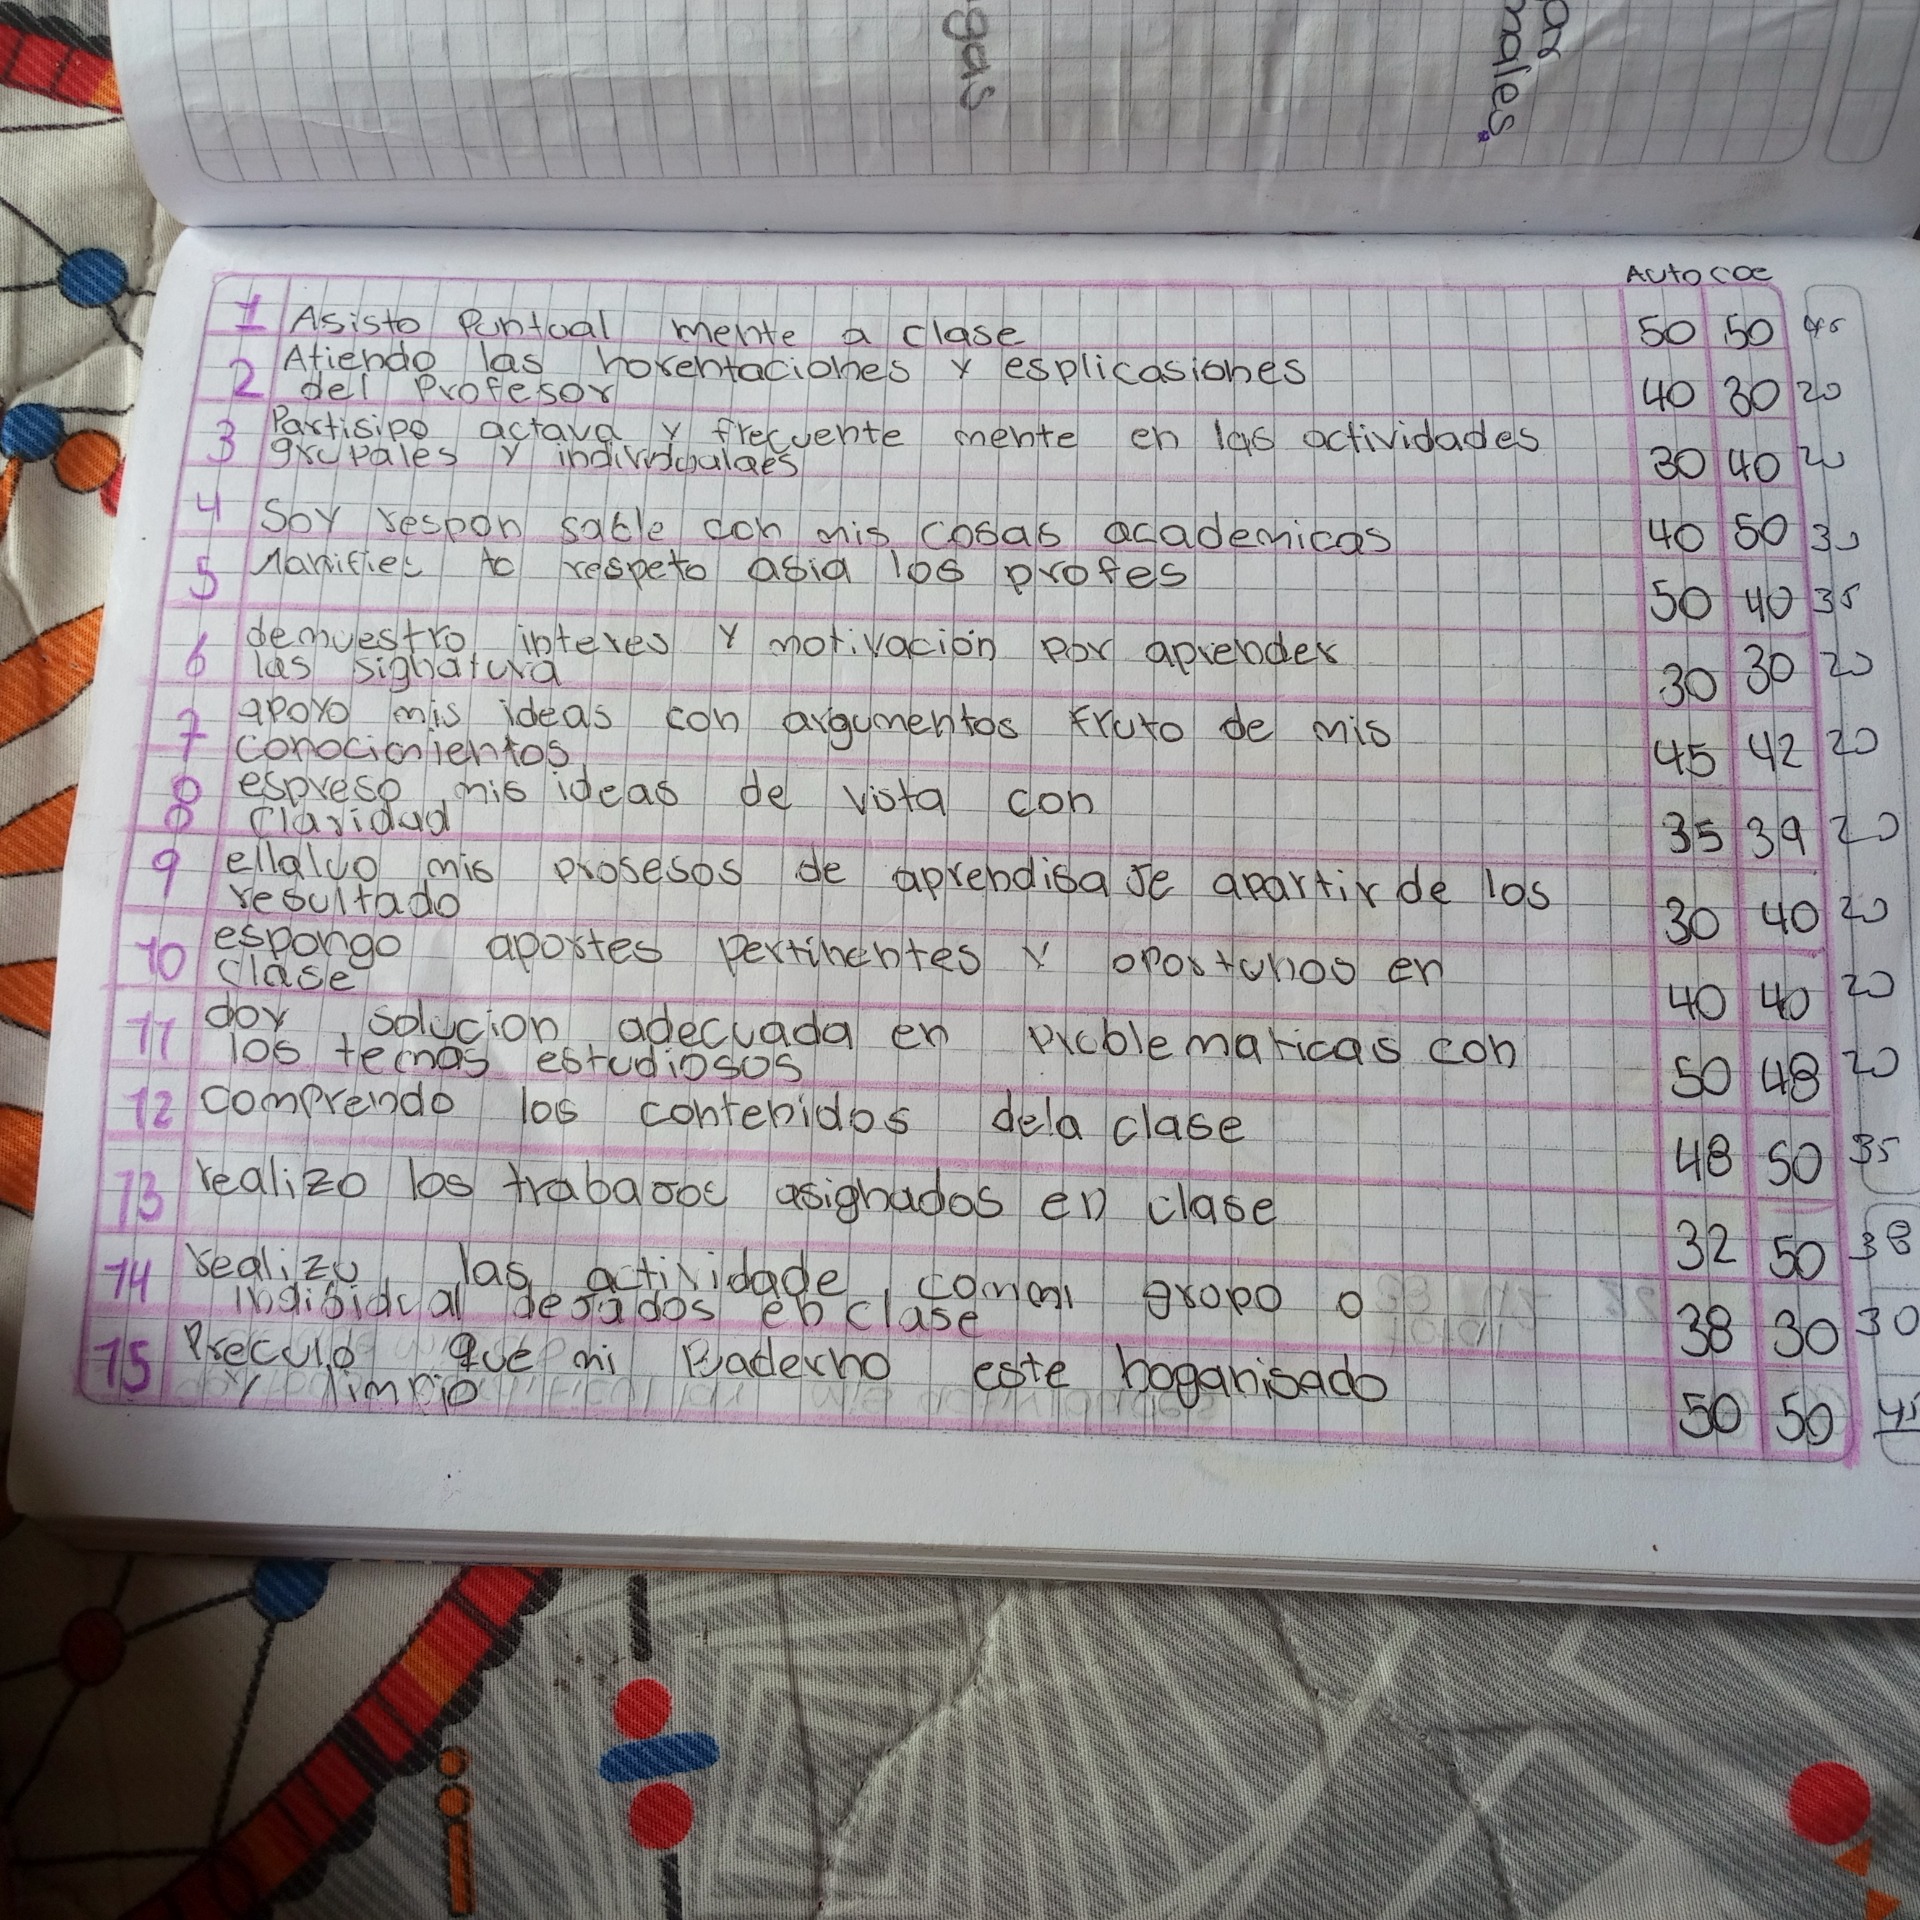 gas
ar
males.
Auto coe
1 Asisto Puntual mente a clase 50 50 45
Atiendo las horentaciones y esplicasiones
2 del Profesor 40 30 20
Partisipo actava y frecuente mente en las actividades
3 grupales y individualaes 30 40 20
4 Soy respon sable con mis cosas academicas 40 50 30
5 Manifies to respeto asia los profes 50 40 35
demuestro interes y motivación por aprender
6 las signatura 30 30 20
apoyo mis ideas con argumentos fruto de mis
7 conocimientos 45 42 20
espreso mis ideas de vista con
8 claridad 35 39 20
9 ellaluo mis prosesos de aprendisaJe apartir de los
resultado 30 40 20
espongo aportes pertinentes y oportunos en
10 clase 40 40 20
doy solucion adecuada en problematicas con
11 los temas estudiosos 50 48 20
12 comprendo los contenidos dela clase 48 50 35
13 realizo los trabaJos asignados en clase 32 50 38
14 realizo las actividade con mi gropo o
indibidual deJados en clase 38 30 30
15 Preculo que mi cuaderno este hoganisado
y limpio 50 50 45